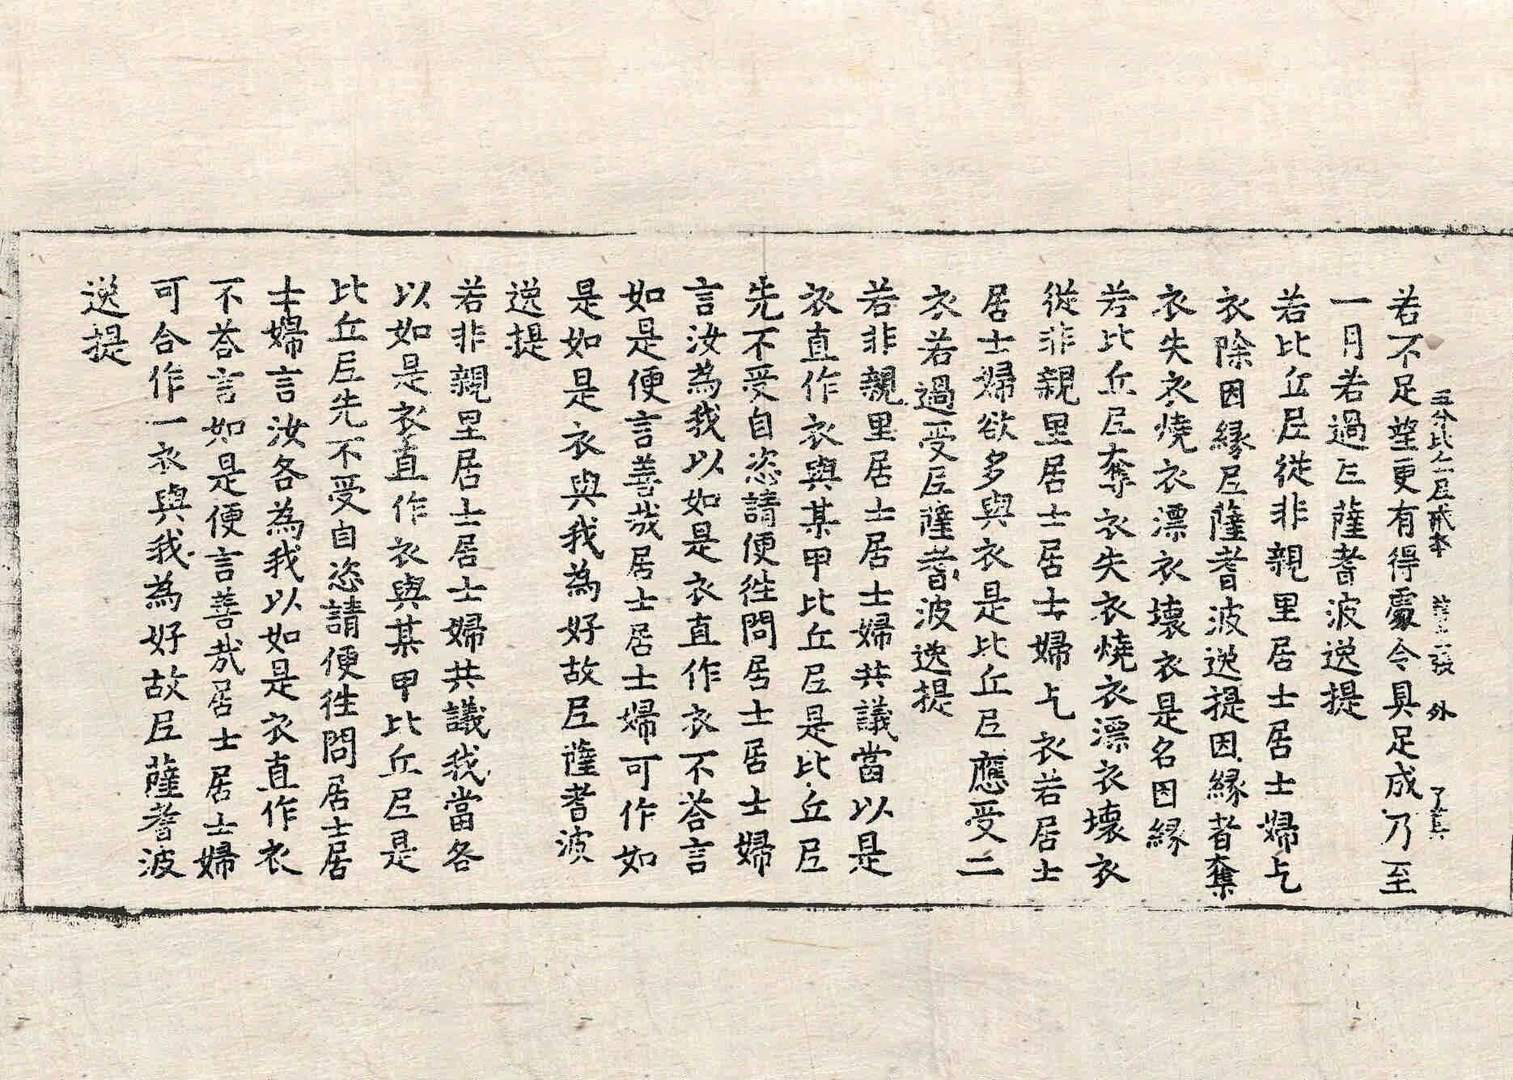 五分比丘尼戒本　外
若不足望更有得處令具足成乃至
一月若過尼薩耆波逸提
若比丘尼從非親里居士居士婦乞
衣除因緣尼薩耆波逸提因緣者奪
衣失衣燒衣漂衣壞衣是名因緣
若比丘尼奪衣失衣燒衣漂衣壞衣
從非親里居士居士婦乞衣若居士
居士婦欲多與衣是比丘尼應受二
衣若過受尼薩耆波逸提
若非親里居士居士婦共議當以是
衣直作衣與某甲比丘尼是比丘尼
先不受自恣請便往問居士居士婦
言汝為我以如是衣直作衣不答言
如是便言善哉居士居士婦可作如
是如是衣與我為好故尼薩耆波
逸提
若非親里居士居士婦共議我當各
以如是衣直作衣與某甲比丘尼是
比丘尼先不受自恣請便往問居士居
士婦言汝各為我以如是衣直作衣
不答言如是便言善哉居士居士婦
可合作一衣與我為好故尼薩耆波
逸提